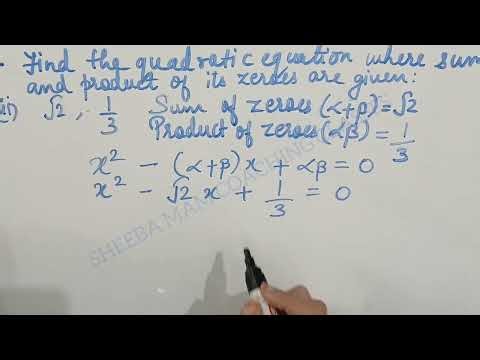 - Find the quadratic equation where sum
and product of its zeroes are given:
ii) √2, 1/3 Sum of zeroes (α+β) = √2
Product of zeroes (αβ) = 1/3
x² - (α+β)x + αβ = 0
x² - √2 x + 1/3 = 0
SHEEBA MAM COACHING